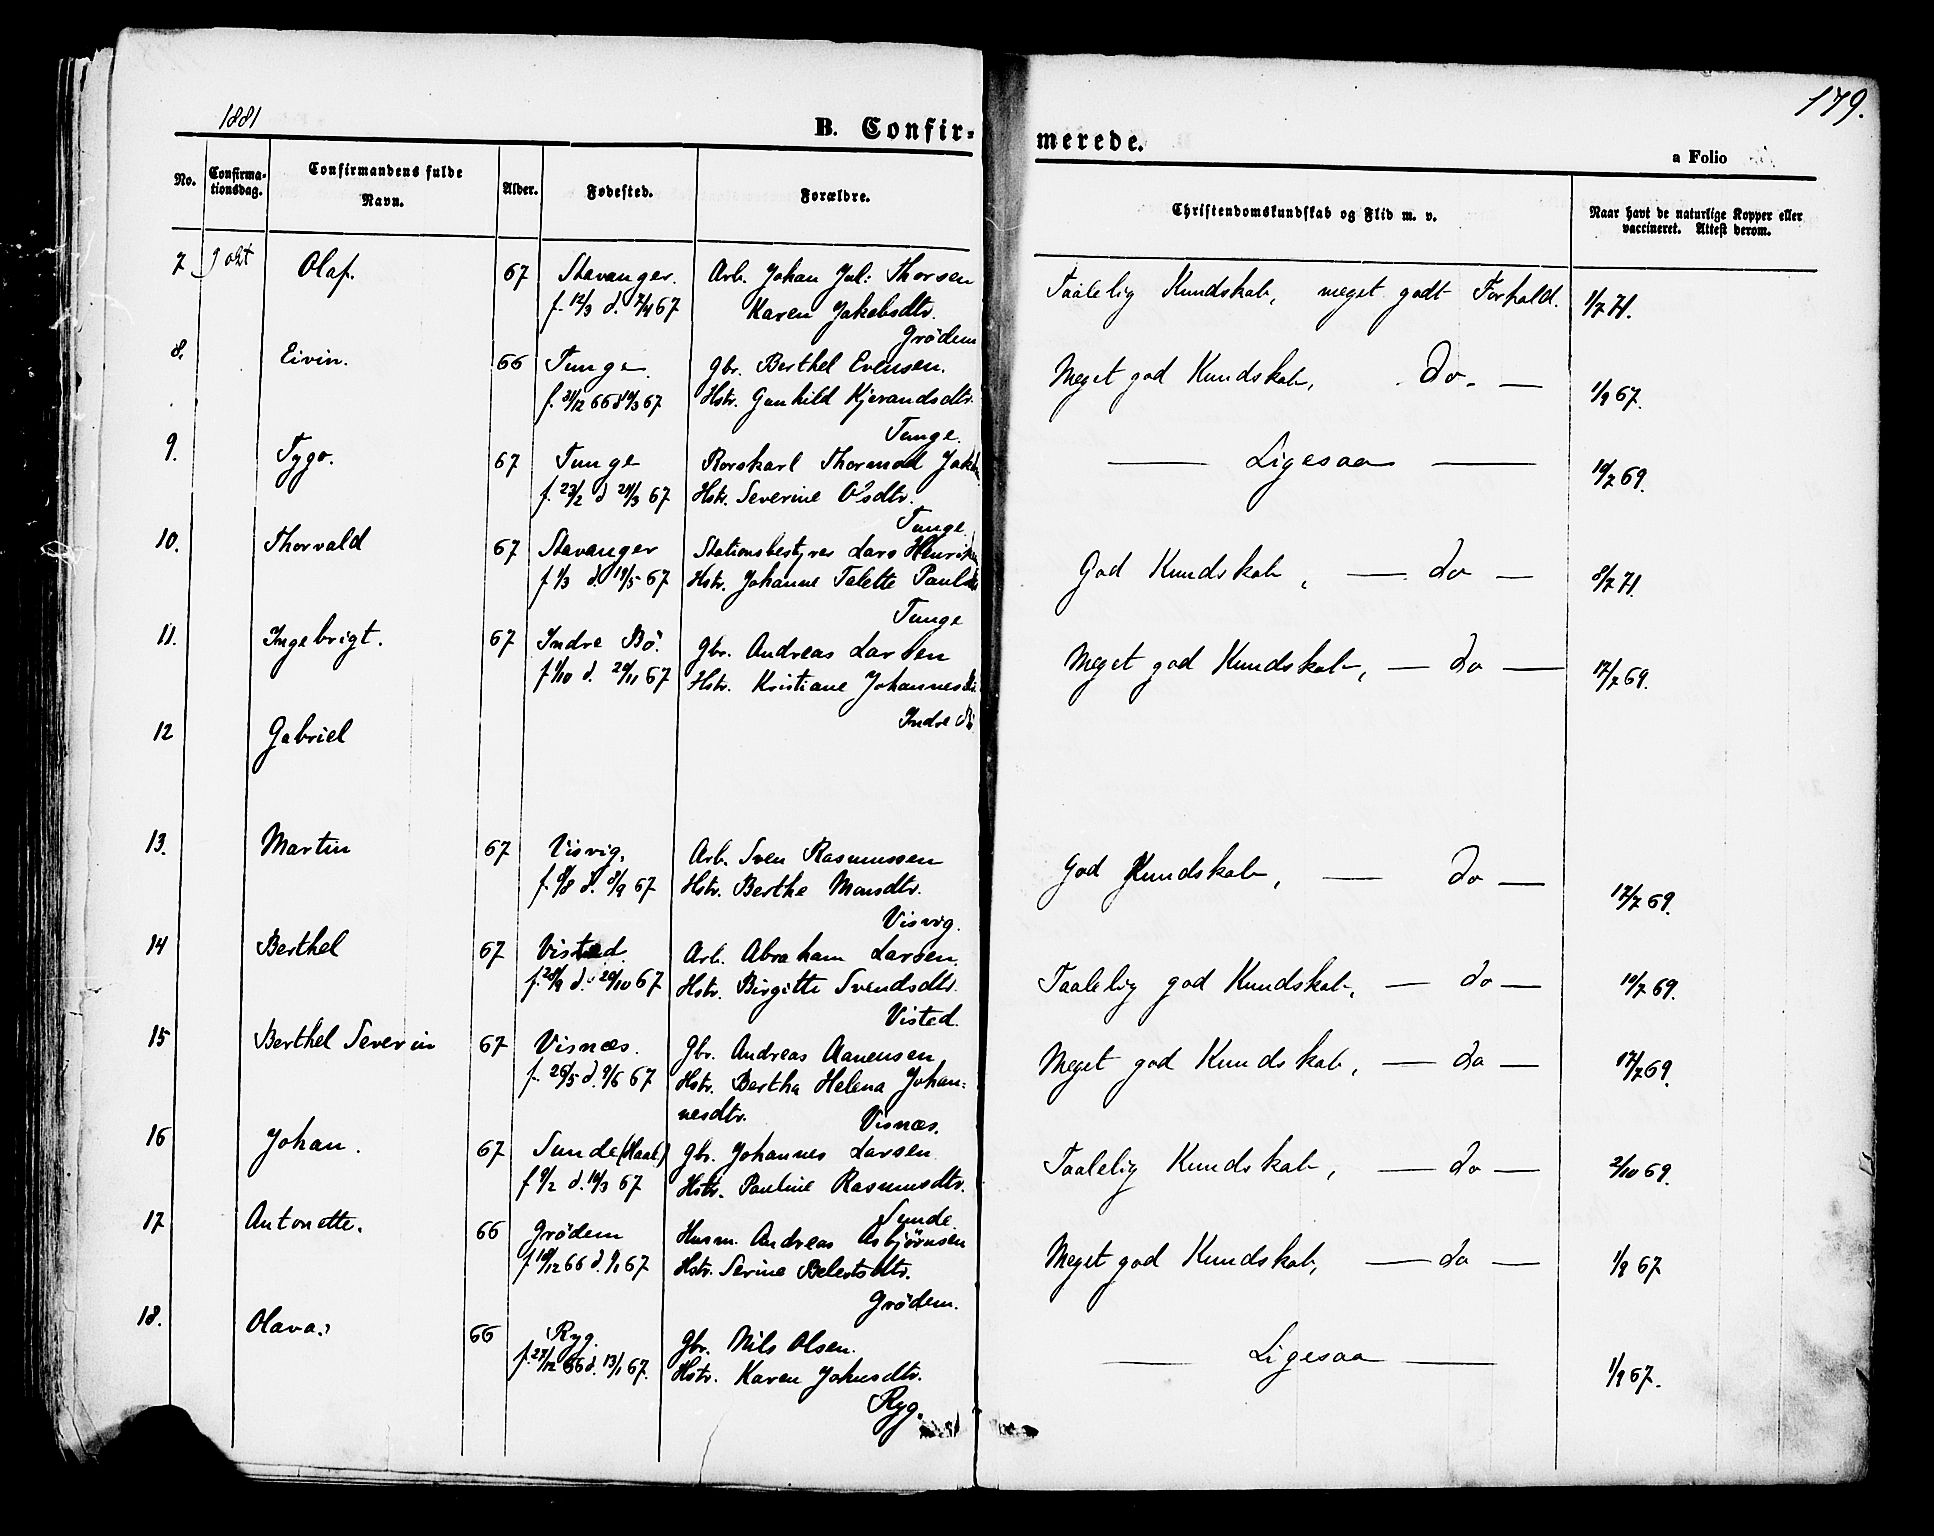 1881
179.
B. Confirmerede.
a Folio
No. Confirmationsdag. Confirmandens fulde Navn. Alder. Fødested. Forældre. Christendomskundskab og Flid m. v. Naar havt de naturlige Kopper eller vaccineret. Attest derom.
7 9 okt Olaf. 67 Stavanger. Arb. Johan Jul: Thorsen Taalelig Kundskab, meget godt Forhold. 1/7 71.
f. 12/3 d. 7/4 67 Karen Jakobsdtr.
Grödem
8. Eivin. 66 Tunge. Gbr. Berthel Evensen. Meget god Kundskab, Do. — 1/9 67.
f. 31/12 66 d 10/3 67 Hstr. Gunhild Kjerandsdtr.
Tunge.
9. Tygo. 67 Tunge Rorskarl Thormod — Ligesaa — 19/7 69.
f. 23/2 d 24/3 67 Hstr. Severine O'sdtr.
Tunge
10. Thorvald 67 Stavanger Stationsbestyrer Lars God Kundskab, — do — 8/7 71.
f 1/3 d. 19/5 67 Hstr. Johanne Talette
Tunge
11. Ingebrigt. 67 Indre Bö. Gbr. Andreas Larsen Meget god Kundskab, — do — 17/7 69.
f 1/10 d. 20/11 67 Hstr. Kristiane
Indre
12 Gabriel
13. Martin 67 Visvig. Arb. Sven Rasmussen God Kundskab, — do — 17/7 69.
d. 8/9 67 Hstr. Berthe Monsdtr.
Visvig.
14 Berthel 67 Visted Arb. Abraham Larsen. Taalelig god Kundskab, — do — 19/7 69.
f. 28/9 d. 20/10 67 Hstr. Birgitte Svendsdtr.
Visted.
15 Berthel Severin 67 Visnæs. Gbr. Andreas Aanensen Meget god Kundskab, — do — 17/7 69.
f. 26/5 d. 9/6 67 Hstr. Bertha Helena Johan=
nesdtr. Visnæs.
16 Johan. 67 Sunde (Haal.) Gbr. Johannes Larsen Taalelig Kundskab, — do — 2/10 69.
67 Hstr. Pauline Rasmusdtr.
Sunde.
17 Antonette. 66 Grödem Husm. Andreas Asbjørnsen Meget god Kundskab, — do — 1/9 67
66 d. 67 Hstr. Serine
Grödem.
18. Olava. 66 Ryg. Gbr. Nils Olsen. — Ligesaa — 1/9 67.
f. 27/12 66 d. 13/1 67. Hstr. Karen Johnsdtr.
Ryg.